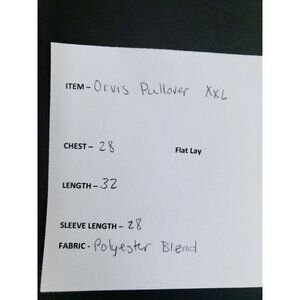 ITEM – Orvis Pullover XXL
CHEST – 28 Flat Lay
LENGTH – 32
SLEEVE LENGTH – 28
FABRIC - Polyester Blend